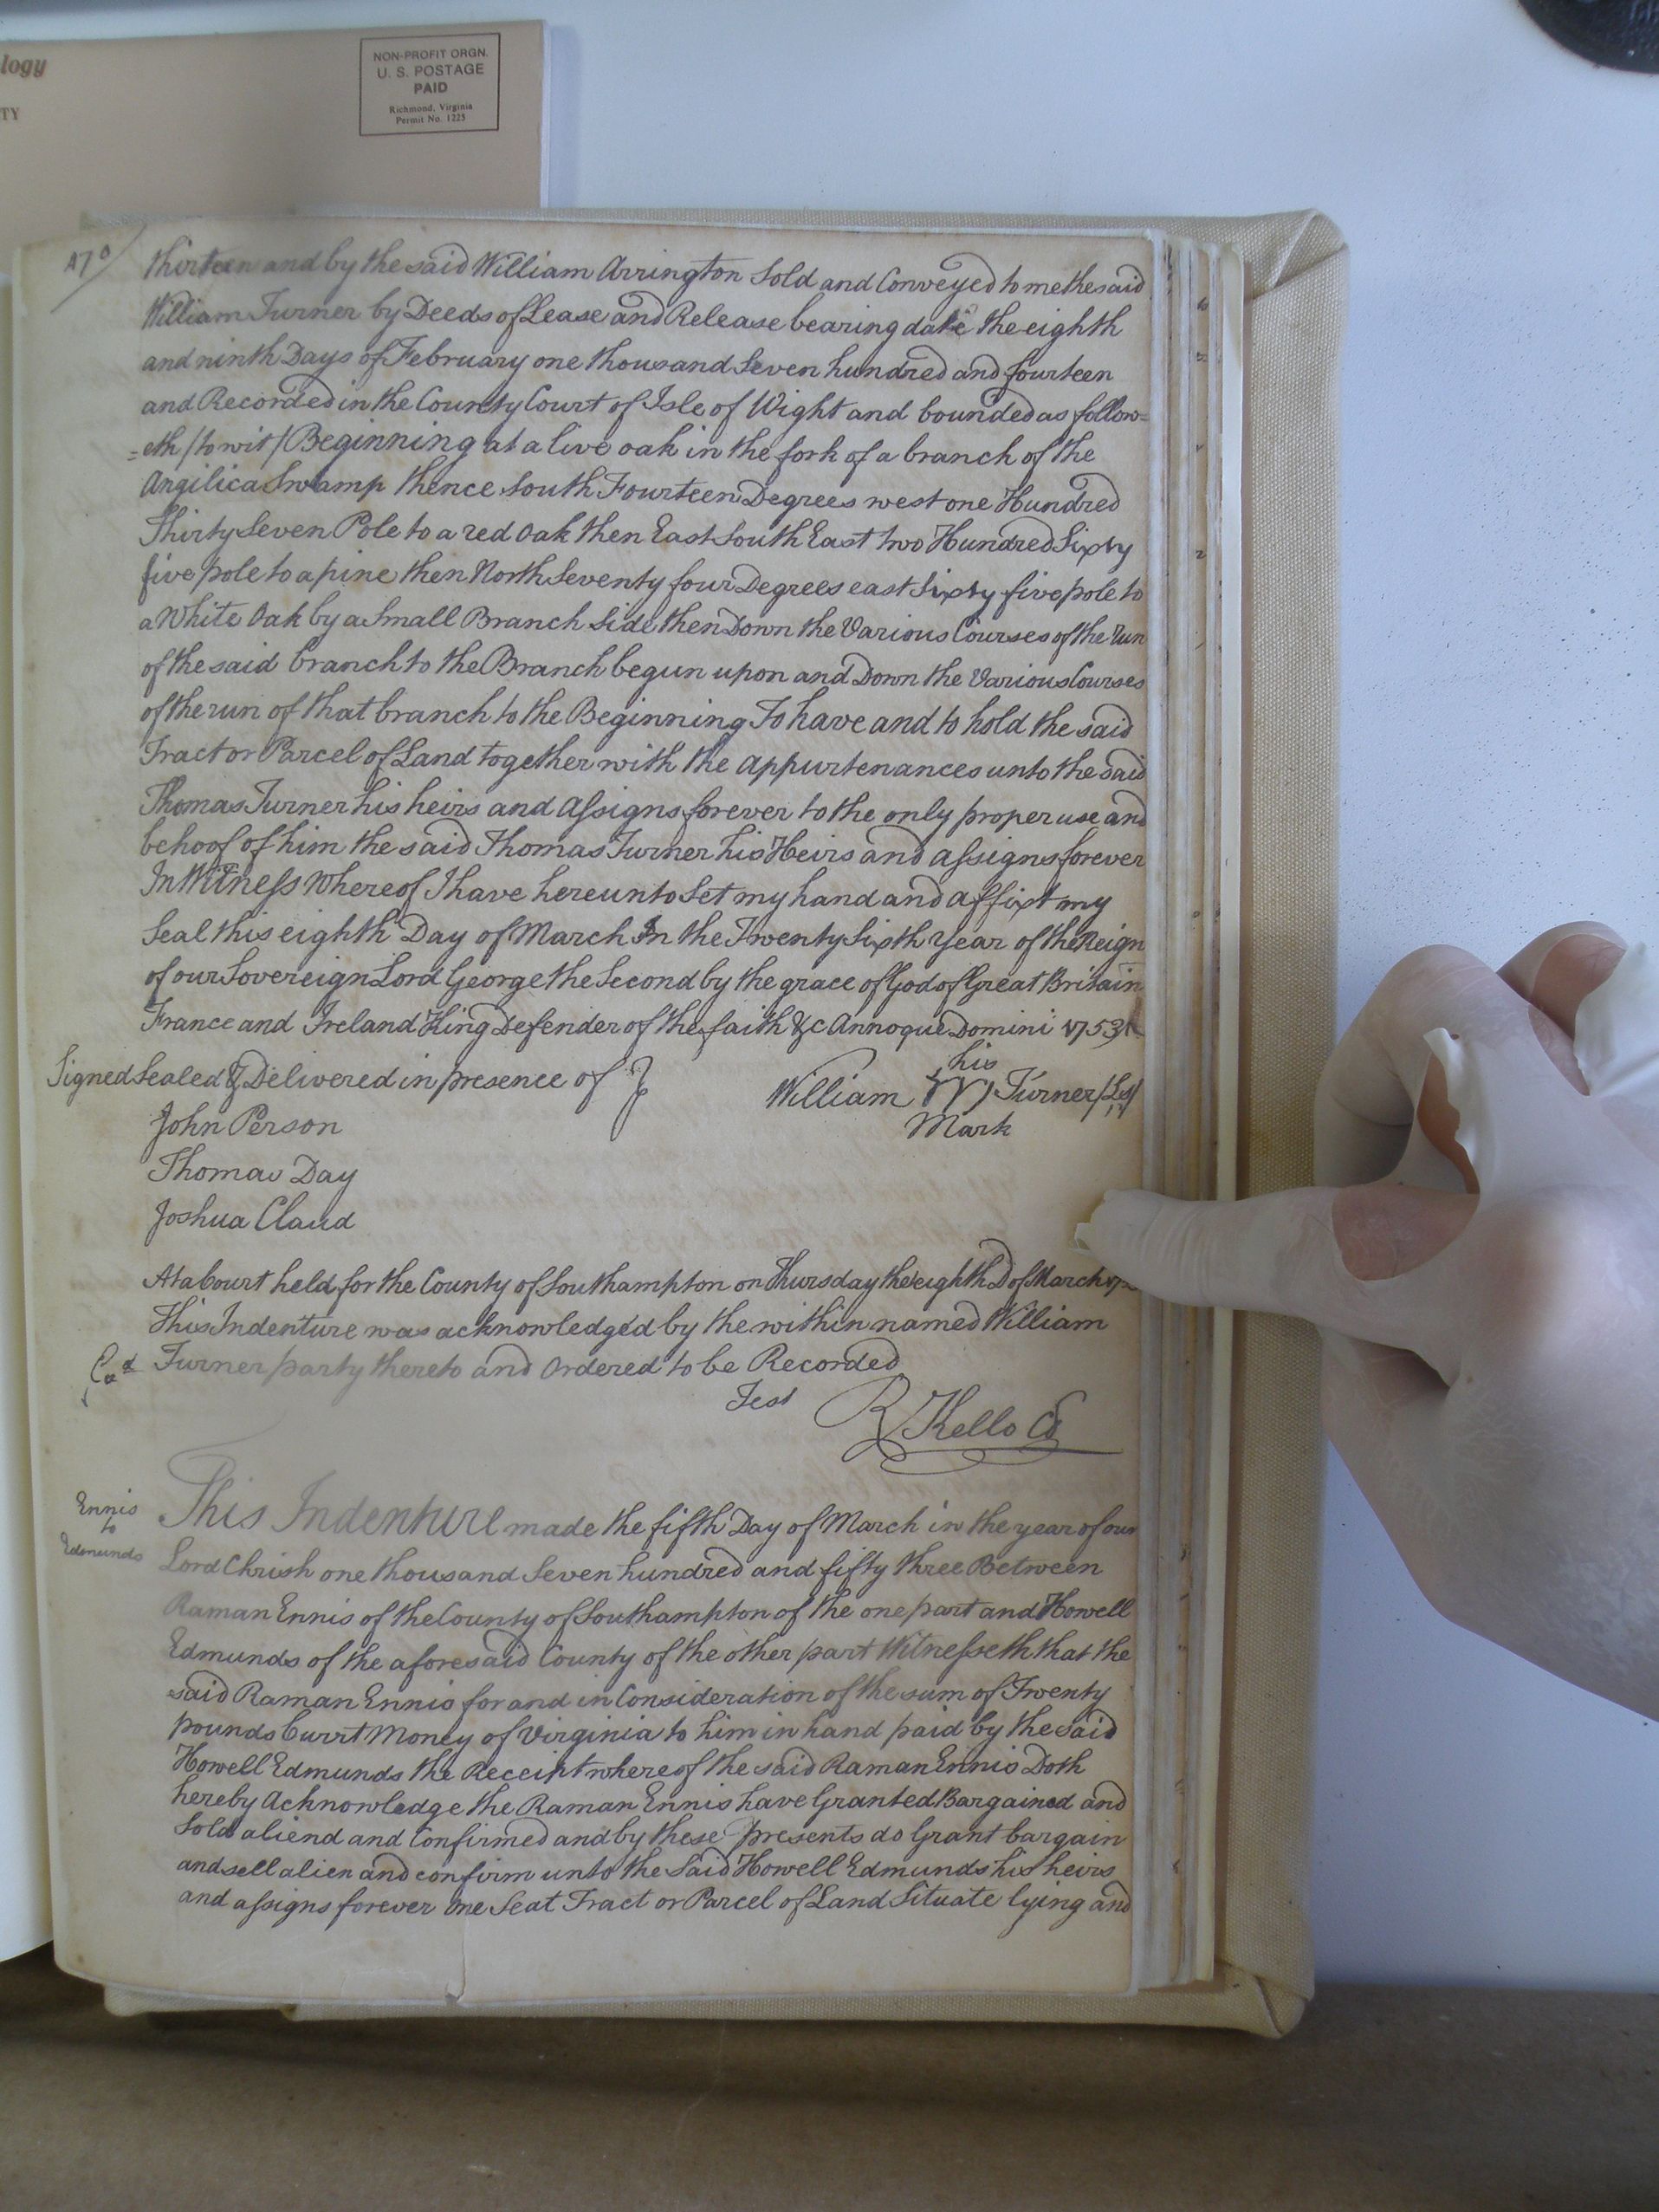 logy
TY
NON-PROFIT ORGN.
U. S. POSTAGE
PAID
Richmond, Virginia
Permit No. 1225
470
thirteen and by the said William Arrington Sold and Conveyed to me the said
William Turner by Deeds of Lease and Release bearing date the eighth
and ninth Days of February one thousand Seven hundred and fourteen
and Recorded in the County Court of Isle of Wight and bounded as follow=
=eth /to wit/ Beginning at a live oak in the fork of a branch of the
Angilica Swamp thence South Fourteen Degrees west one Hundred
Thirty Seven Pole to a red Oak then East South East two Hundred Sixty
five pole to a pine then North Seventy four Degrees east Sixty five pole to
a White Oak by a Small Branch Side then Down the Various Courses of the Run
of the said branch to the Branch begun upon and Down the Various Courses
of the run of that branch to the Beginning To have and to hold the said
Tract or Parcel of Land together with the appurtenances unto the said
Thomas Turner his heirs and assigns forever to the only proper use and
behoof of him the said Thomas Turner his Heirs and assigns forever
In Witness whereof I have hereunto Set my hand and affixt my
Seal this eighth Day of March In the Twenty Sixth Year of the Reign
of our Sovereign Lord George the Second by the grace of God of Great Britain
France and Ireland King Defender of the faith &c Annoque Domini 1753
Signed Sealed & Delivered in presence of
his
William W Turner /Ls/
Mark
John Person
Thomas Day
Joshua Claud
At a Court held for the County of Southampton on Thursday the eighth D of March
This Indenture was acknowledged by the within named William
Turner party thereto and Ordered to be Recorded
Test
R Kello Cl
Ennis
to
Edmunds
This Indenture made the fifth Day of March in the year of our
Lord Chrish one thousand Seven hundred and fifty three Between
Raman Ennis of the County of Southampton of the one part and Howell
Edmunds of the aforesaid County of the other part Witnesseth that the
said Raman Ennis for and in Consideration of the sum of Twenty
pounds Currt Money of Virginia to him in hand paid by the said
Howell Edmunds the Receipt whereof the said Raman Ennis Doth
hereby Acknowledge the Raman Ennis have Granted Bargained and
Sold aliend and Confirmed and by these presents do Grant bargain
and sell alien and confirm unto the Said Howell Edmunds his heirs
and assigns forever one Seat Tract or Parcel of Land Situate lying and